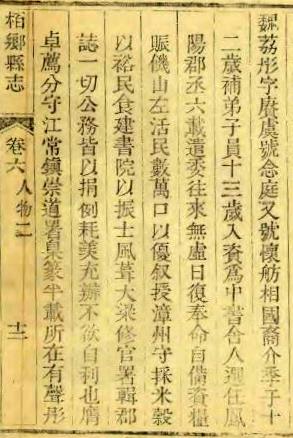 魏荔彤字賡虞號念庭又號懷舫相國裔介季子十
二歲補弟子員十三歲入資爲中書舍人選任鳳
陽郡丞六載遣委往來無虛日復奉命自備資糧
賑饑山左活民數萬口以優叙授漳州守採米穀
以裕民食建書院以振士風葺大梁修官署輯郡
誌一切公務皆以捐倒耗羡充辦不欲自利也膺
卓薦分守江常鎮崇道署臬篆半載所在有聲彤
栢鄉縣志
卷六 人物二
十二